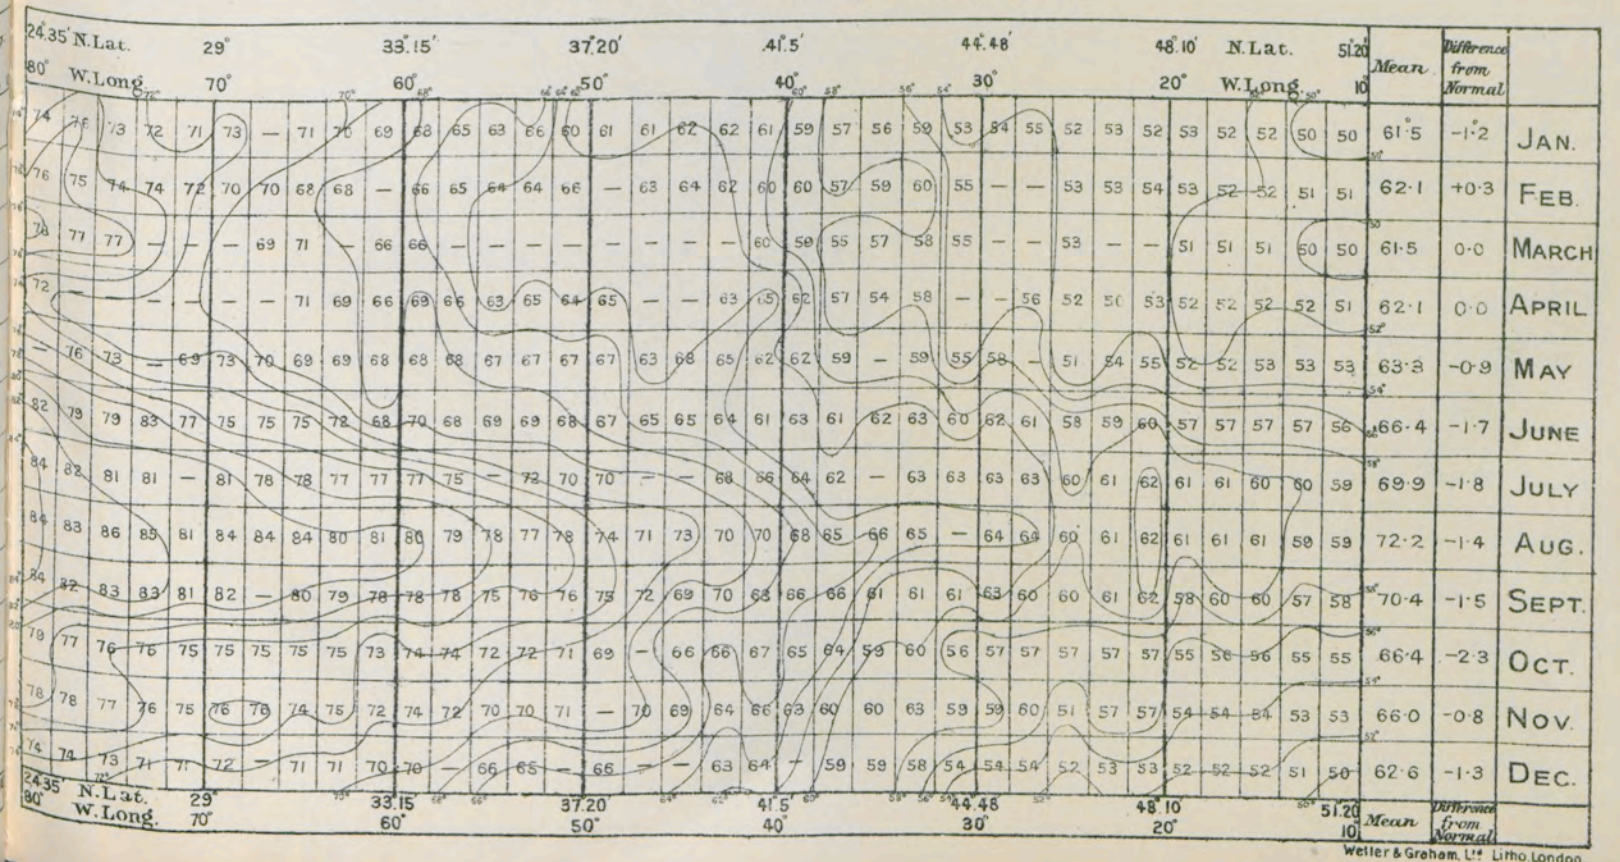 24.35′ N.Lat. 29° 33.15′ 37.20′ 41.5′ 44.48′ 48.10′ N.Lat. 51.20
80° W.Long. 70° 60° 50° 40° 30° 20° W.Long. 10
Mean Difference from Normal
74 76 73 72 71 73 — 71 70 69 68 65 63 66 60 61 61 62 62 61 59 57 56 59 53 54 55 52 53 52 53 52 52 50 50 61°5 -1°2 JAN.
76 75 74 74 72 70 70 68 68 — 66 65 64 64 66 — 63 64 62 60 60 57 59 60 55 — — 53 53 54 53 52 52 51 51 62·1 +0·3 FEB.
78 77 77 — — — 69 71 — 66 66 — — — — — — — — 60 59 55 57 58 55 — — 53 — — 51 51 51 50 50 61·5 0·0 MARCH
72 — — — — — — 71 69 66 69 66 63 65 64 65 — — 63 65 62 57 54 58 — — 56 52 50 53 52 52 52 52 51 62·1 0·0 APRIL
— 76 73 — 69 73 70 69 69 68 68 68 67 67 67 67 63 68 65 62 62 59 — 59 55 58 — 51 54 55 52 52 53 53 53 63·3 -0·9 MAY
82 79 79 83 77 75 75 75 72 68 70 68 69 69 68 67 65 65 64 61 63 61 62 63 60 62 61 58 59 60 57 57 57 57 56 66·4 -1·7 JUNE
84 82 81 81 — 81 78 78 77 77 77 75 — 72 70 70 — — 68 66 64 62 — 63 63 63 63 60 61 62 61 61 60 60 59 69·9 -1·8 JULY
84 83 86 85 81 84 84 84 80 81 80 79 78 77 78 74 71 73 70 70 68 65 66 65 — 64 64 60 61 62 61 61 61 59 59 72·2 -1·4 AUG.
84 82 83 83 81 82 — 80 79 78 78 78 75 76 76 75 72 69 70 68 66 66 61 61 61 63 60 60 61 62 58 60 60 57 58 70·4 -1·5 SEPT.
79 77 76 76 75 75 75 75 75 73 74 74 72 72 71 69 — 66 66 67 65 64 59 60 56 57 57 57 57 57 55 56 56 55 55 66·4 -2·3 OCT.
78 78 77 76 75 76 76 74 75 72 74 72 70 70 71 — 70 69 64 66 63 60 60 63 59 59 60 51 57 57 54 54 54 53 53 66·0 -0·8 NOV.
74 74 73 71 71 72 — 71 71 70 70 — 66 65 — 66 — — 63 64 — 59 59 58 54 54 54 52 53 53 52 52 52 51 50 62·6 -1·3 DEC.
24.35′ N.Lat. 29° 33.15 37.20 41.5′ 44.48 48.10′ 51.20
80° W.Long. 70° 60° 50° 40° 30° 20° 10
Mean Difference from Normal
Weller & Graham, Ltd. Litho. London